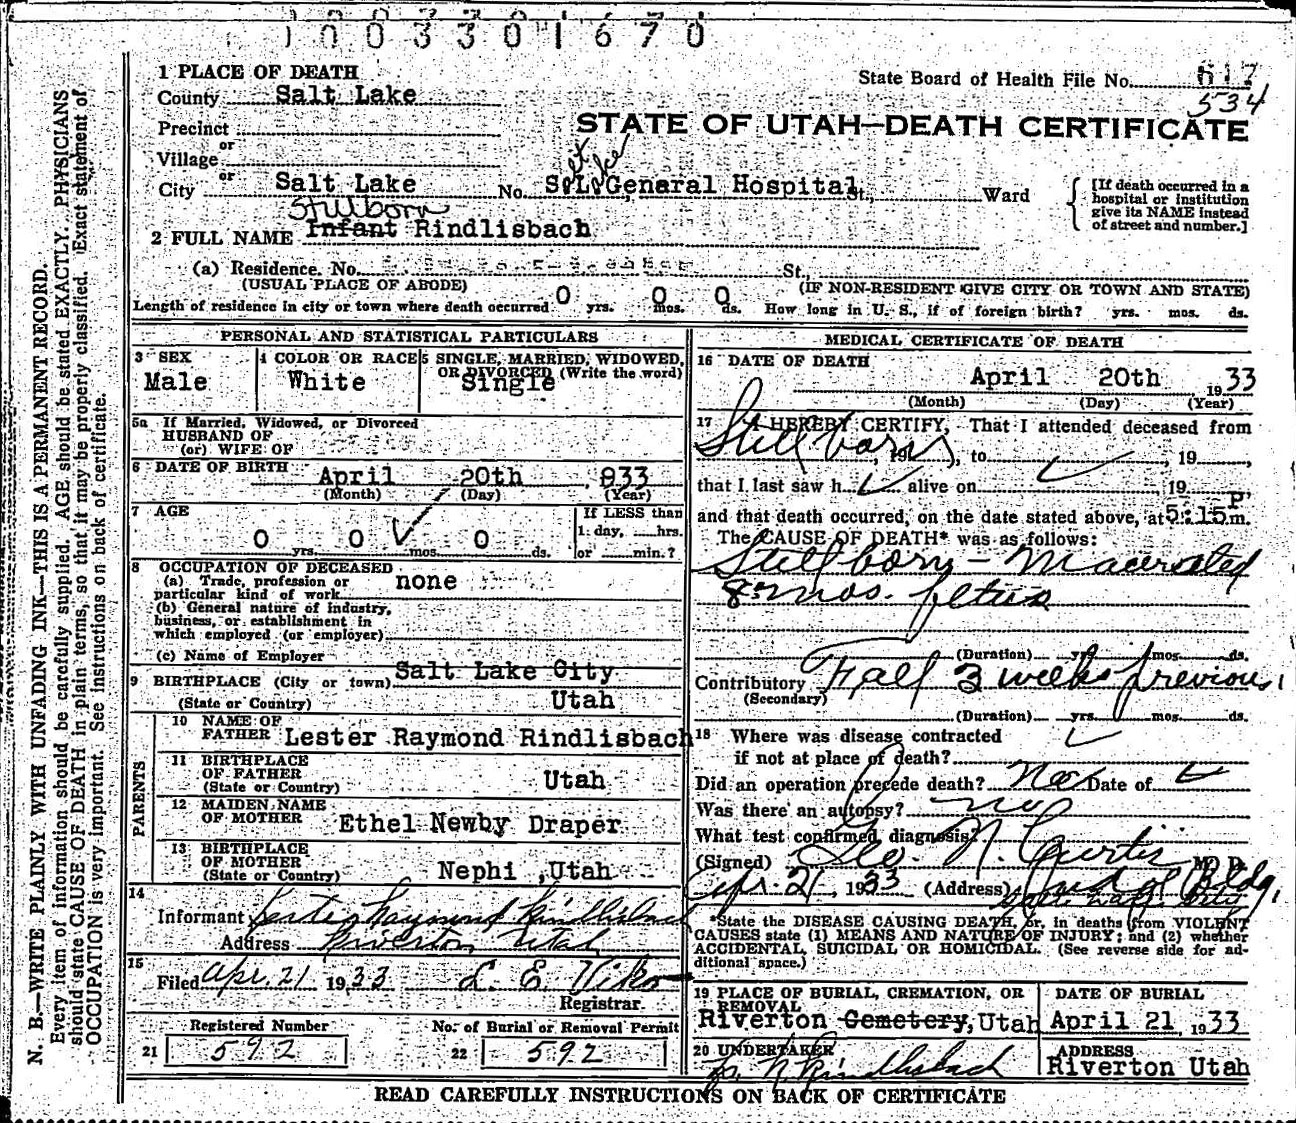 1003301670
1 PLACE OF DEATH
State Board of Health File No. 617
534
County Salt Lake
STATE OF UTAH—DEATH CERTIFICATE
Precinct
or
Village
or
City Salt Lake No. Salt Lake Genaral Hospital St., Ward
[If death occurred in a hospital or institution give its NAME instead of street and number.]
Stillborn
2 FULL NAME Infant Rindlisbach
(a) Residence. No. St.,
(USUAL PLACE OF ABODE) (IF NON-RESIDENT GIVE CITY OR TOWN AND STATE)
Length of residence in city or town where death occurred 0 yrs. 0 mos. 0 ds. How long in U. S., if of foreign birth? yrs. mos. ds.
PERSONAL AND STATISTICAL PARTICULARS
3 SEX
Male
4 COLOR OR RACE
White
5 SINGLE, MARRIED, WIDOWED,
OR DIVORCED (Write the word)
Single
5a If Married, Widowed, or Divorced
HUSBAND OF
(or) WIFE OF
6 DATE OF BIRTH April 20th, 933
(Month) (Day) (Year)
7 AGE
0 yrs. 0 mos. 0 ds.
If LESS than
1 day, hrs.
or min.?
8 OCCUPATION OF DECEASED
(a) Trade, profession or
particular kind of work none
(b) General nature of industry,
business, or establishment in
which employed (or employer)
(c) Name of Employer
9 BIRTHPLACE (City or town) Salt Lake City
(State or Country) Utah
PARENTS
10 NAME OF
FATHER Lester Raymond Rindlisbach
11 BIRTHPLACE
OF FATHER
(State or Country) Utah
12 MAIDEN NAME
OF MOTHER Ethel Newby Draper
13 BIRTHPLACE
OF MOTHER
(State or Country) Nephi ,Utah
14
Informant Lester Raymond Rindlisbach
Address Riverton Utah
15
Filed Apr. 21 1933 L. E. Viko
Registrar.
Registered Number
21 592
No. of Burial or Removal Permit
22 592
MEDICAL CERTIFICATE OF DEATH
16 DATE OF DEATH
April 20th 1933
(Month) (Day) (Year)
17 I HEREBY CERTIFY, That I attended deceased from
Stillborn, 19, to, 19
that I last saw h alive on, 19
and that death occurred, on the date stated above, at 5:15 P. m.
The CAUSE OF DEATH* was as follows:
Stillborn - Macerated
8 mos. fetus
(Duration) yrs. mos. ds.
Contributory Fall 3 weeks previous
(Secondary)
(Duration) yrs. mos. ds.
18 Where was disease contracted
if not at place of death?
Did an operation precede death? No Date of
Was there an autopsy? no
What test confirmed diagnosis?
(Signed) Geo. N. Curtis M. D.
Apr. 21 1933 (Address) Judge Bldg.
Salt Lake City
*State the DISEASE CAUSING DEATH, or, in deaths from VIOLENT
CAUSES state (1) MEANS AND NATURE OF INJURY; and (2) whether
ACCIDENTAL, SUICIDAL OR HOMICIDAL. (See reverse side for ad-
ditional space.)
19 PLACE OF BURIAL, CREMATION, OR
REMOVAL
Riverton Cemetery, Utah
DATE OF BURIAL
April 21, 1933
20 UNDERTAKER
Rindlisbach
ADDRESS
Riverton Utah
READ CAREFULLY INSTRUCTIONS ON BACK OF CERTIFICATE
N. B.—WRITE PLAINLY WITH UNFADING INK—THIS IS A PERMANENT RECORD.
Every item of information should be carefully supplied. AGE should be stated EXACTLY. PHYSICIANS
should state CAUSE OF DEATH in plain terms, so that it may be properly classified. Exact statement of
OCCUPATION is very important. See instructions on back of certificate.